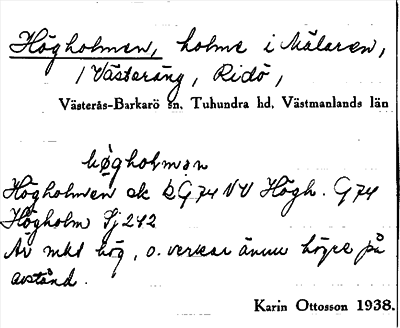 Högholmen, holme i Mälaren,
/ Västeräng, Ridö,
Västerås-Barkarö sn, Tuhundra hd, Västmanlands län
høgholmən
Högholmen ek G74 NV Högh. G74
Högholm Sj 242
Är mkt hög, o. verkar ännu högre på
avstånd.
Karin Ottosson 1938.